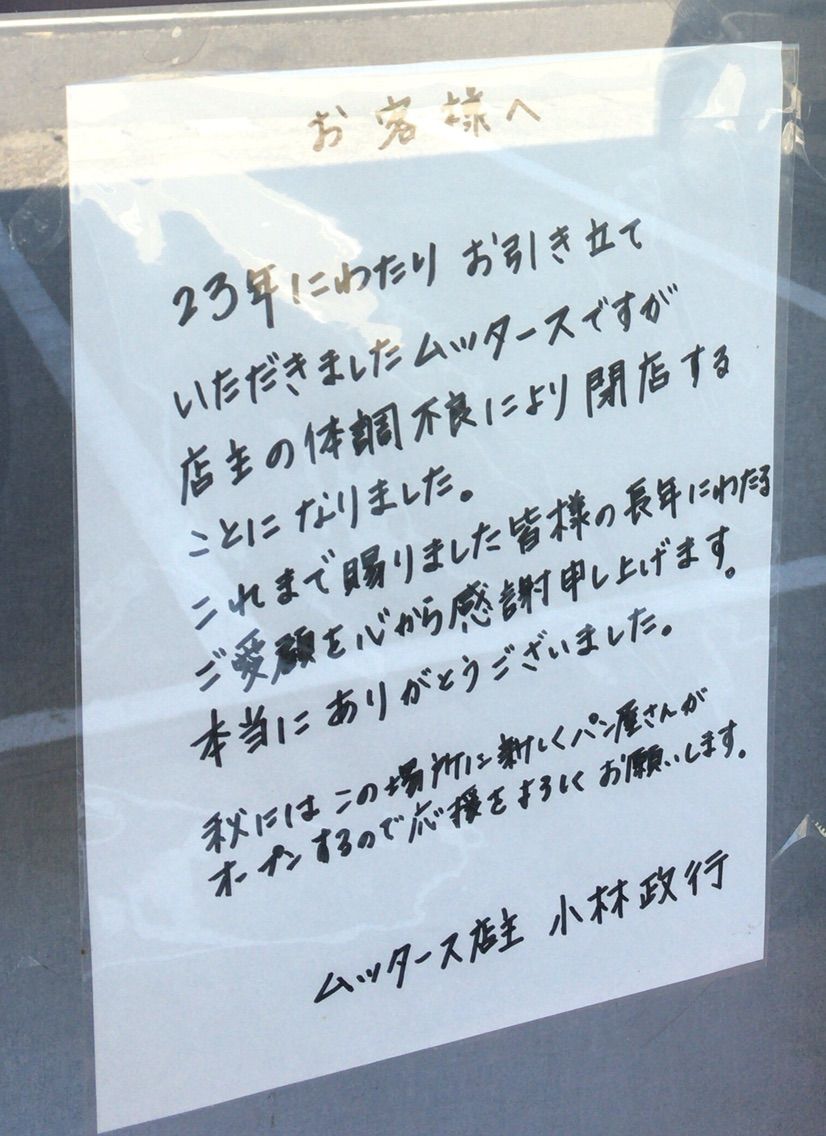 お客様へ
23年にわたり お引き立て
いただきましたムッタースですが
店主の体調不良により閉店する
ことになりました。
これまで賜りました皆様の長年にわたる
ご愛顧を心から感謝申し上げます。
本当にありがとうございました。
秋にはこの場所に新しくパン屋さんが
オープンするので応援をよろしくお願いします。
ムッタース店主 小林政行